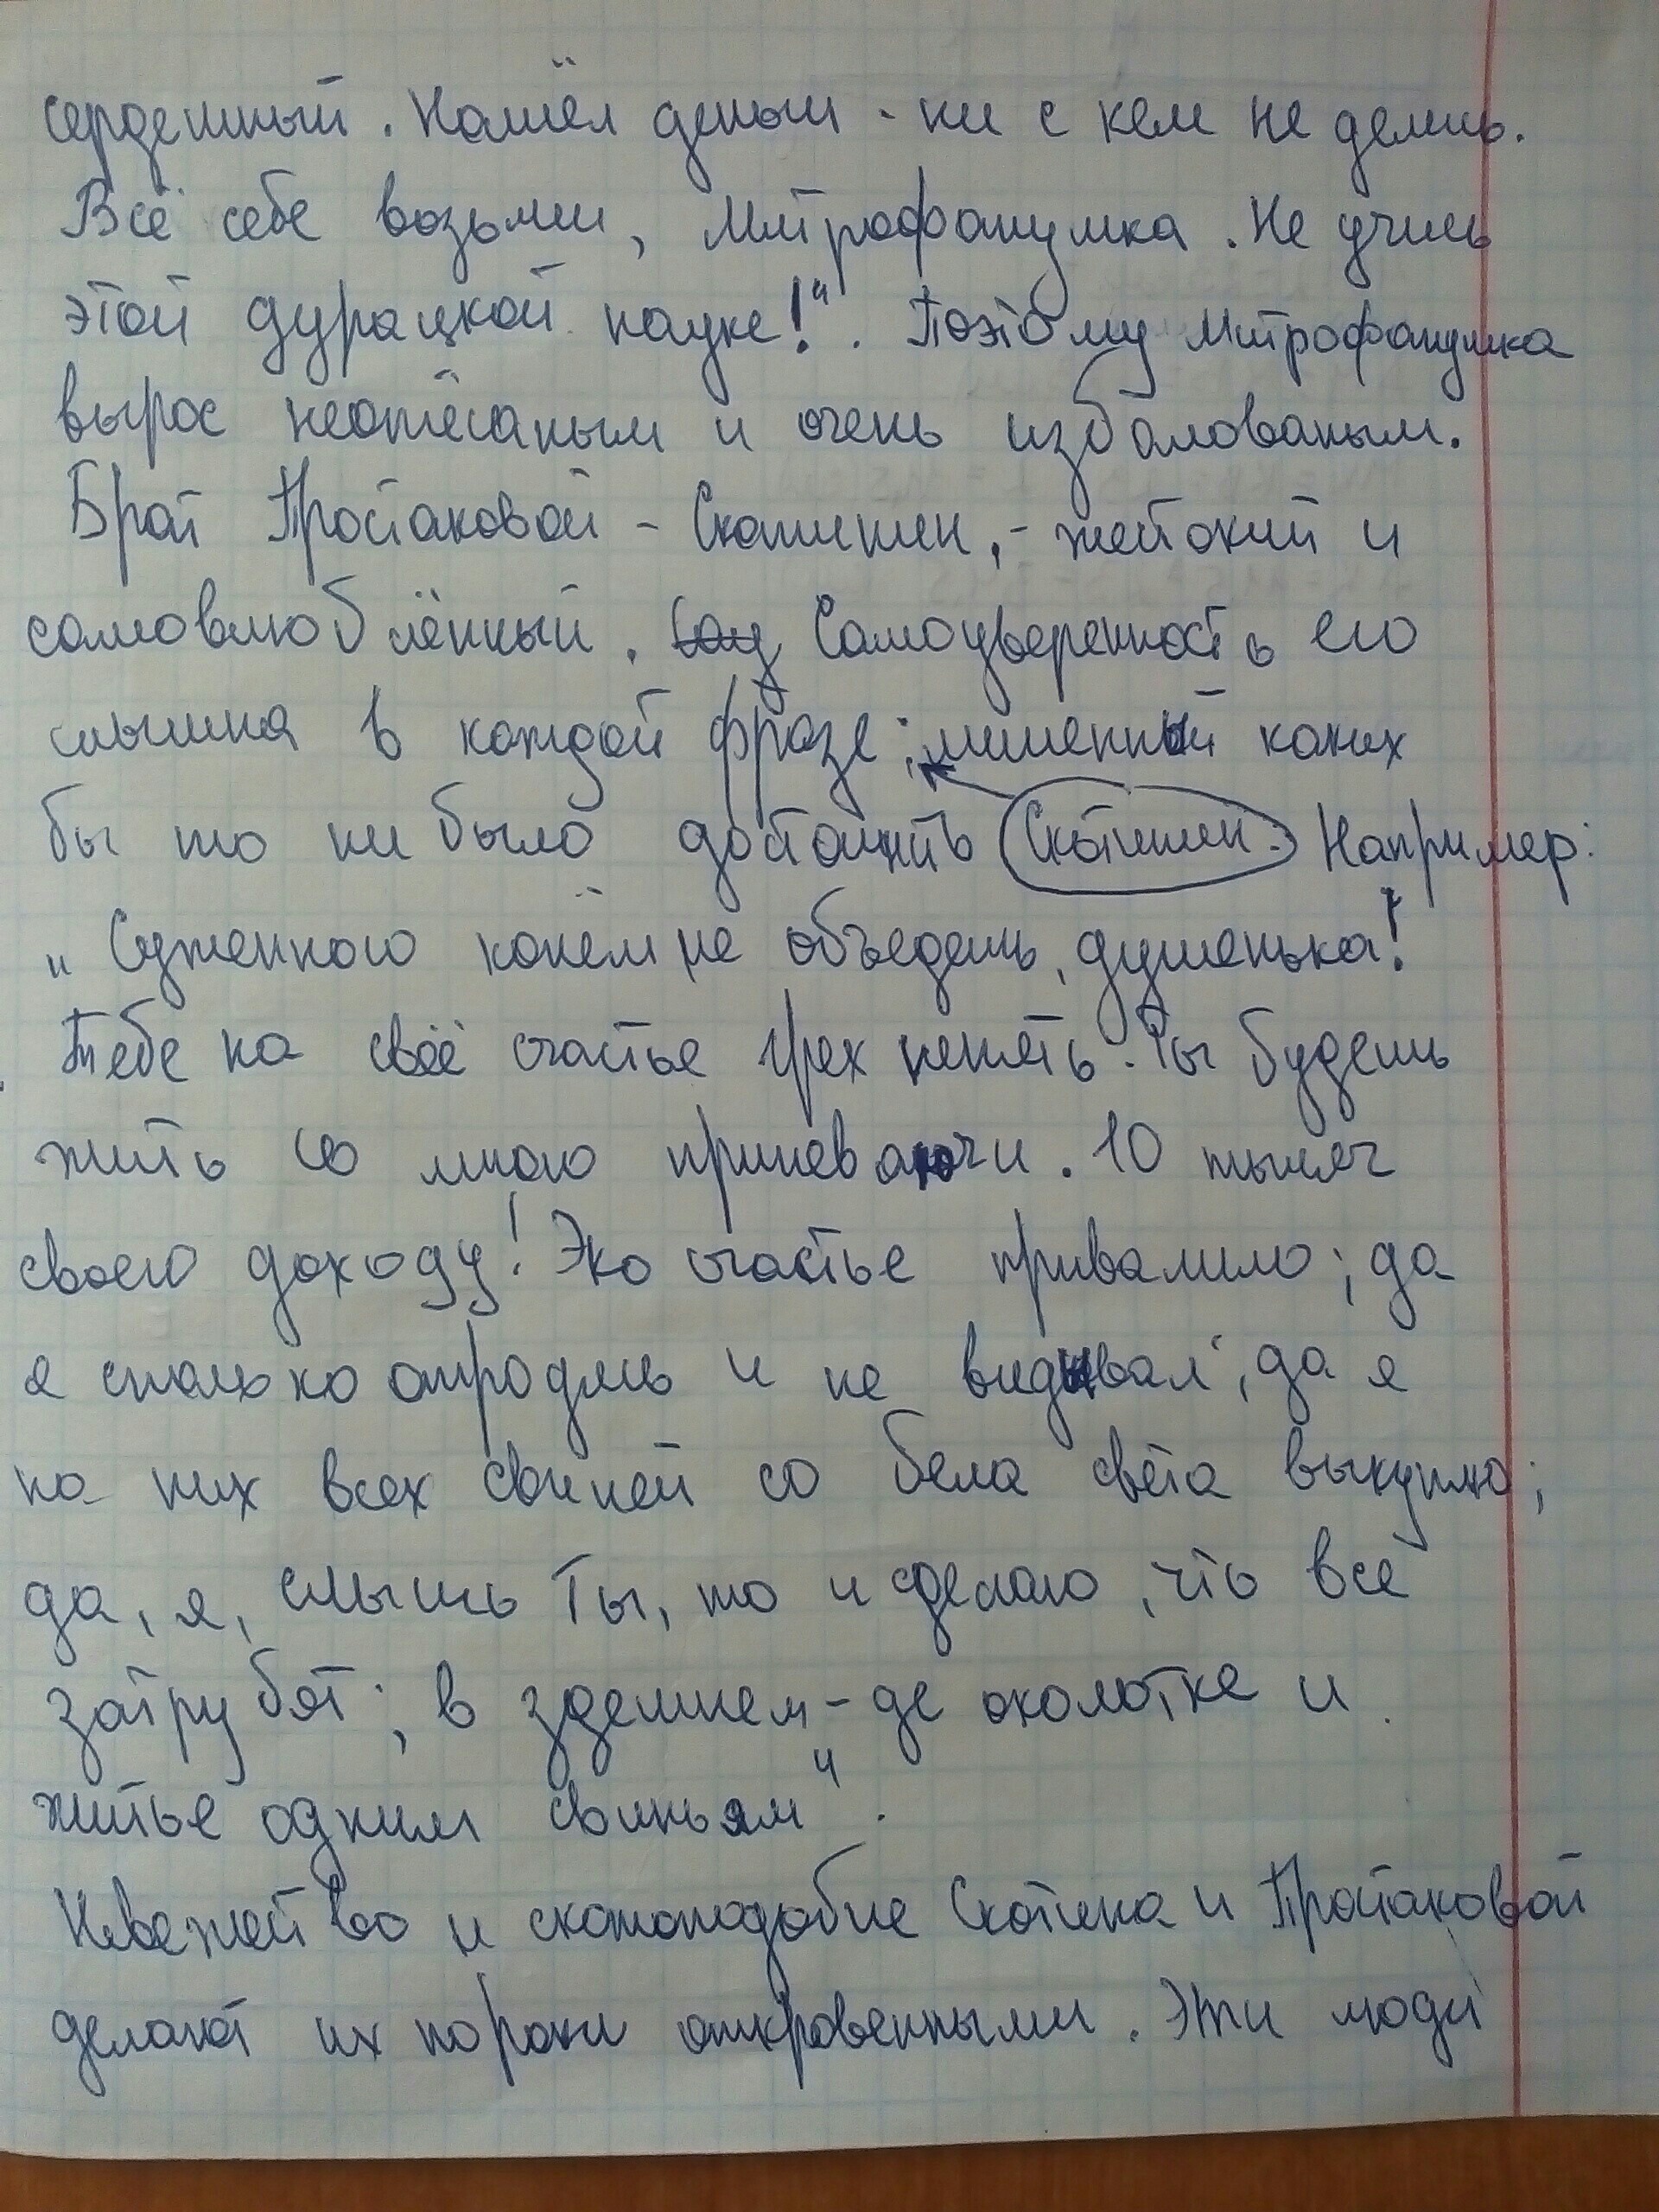 сердешный. Нашёл деньги - ни с кем не делись.
Всё себе возьми, Митрофанушка. Не учись
этой дурацкой науке!". Поэтому Митрофанушка
вырос неотёсаным и очень избалованым.
Брат Простаковой - Скотинин, - жестокий и
самовлюблённый. Сау Самоуверенность его
слышна в каждой фразе; лишенный каких
бы то ни было достоинств Скотинин. Например:
„Суженного конём не объедешь, душенька!
Тебе на своё счастье грех пенять. Ты будешь
жить со мною припеваючи. 10 тысяч
своего доходу! Эко счастье привалило; да
я столько отродясь и не видывал; да я
на них всех свиней со бела света выкуплю;
да, я, слышь ты, то и сделаю, что все
затрубят; в здешнем-де околотке и
житье одним свиньям".
Невежество и скотоподобие Скотина и Простаковой
делают их пороки откровенными. Эти люди